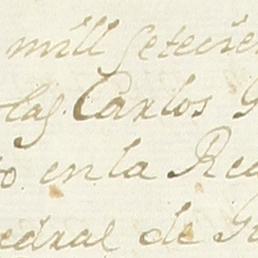 mill setecien
olas Carlos G
to en la Rea
edral de Go